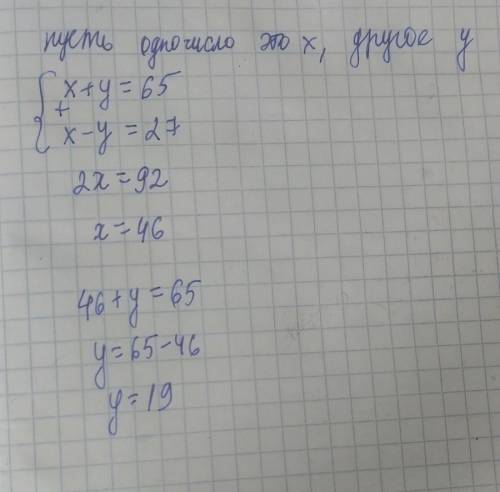 пусть одно число это x, другое y
x+y=65
+
x-y=27
2x=92
x=46
46+y=65
y=65-46
y=19